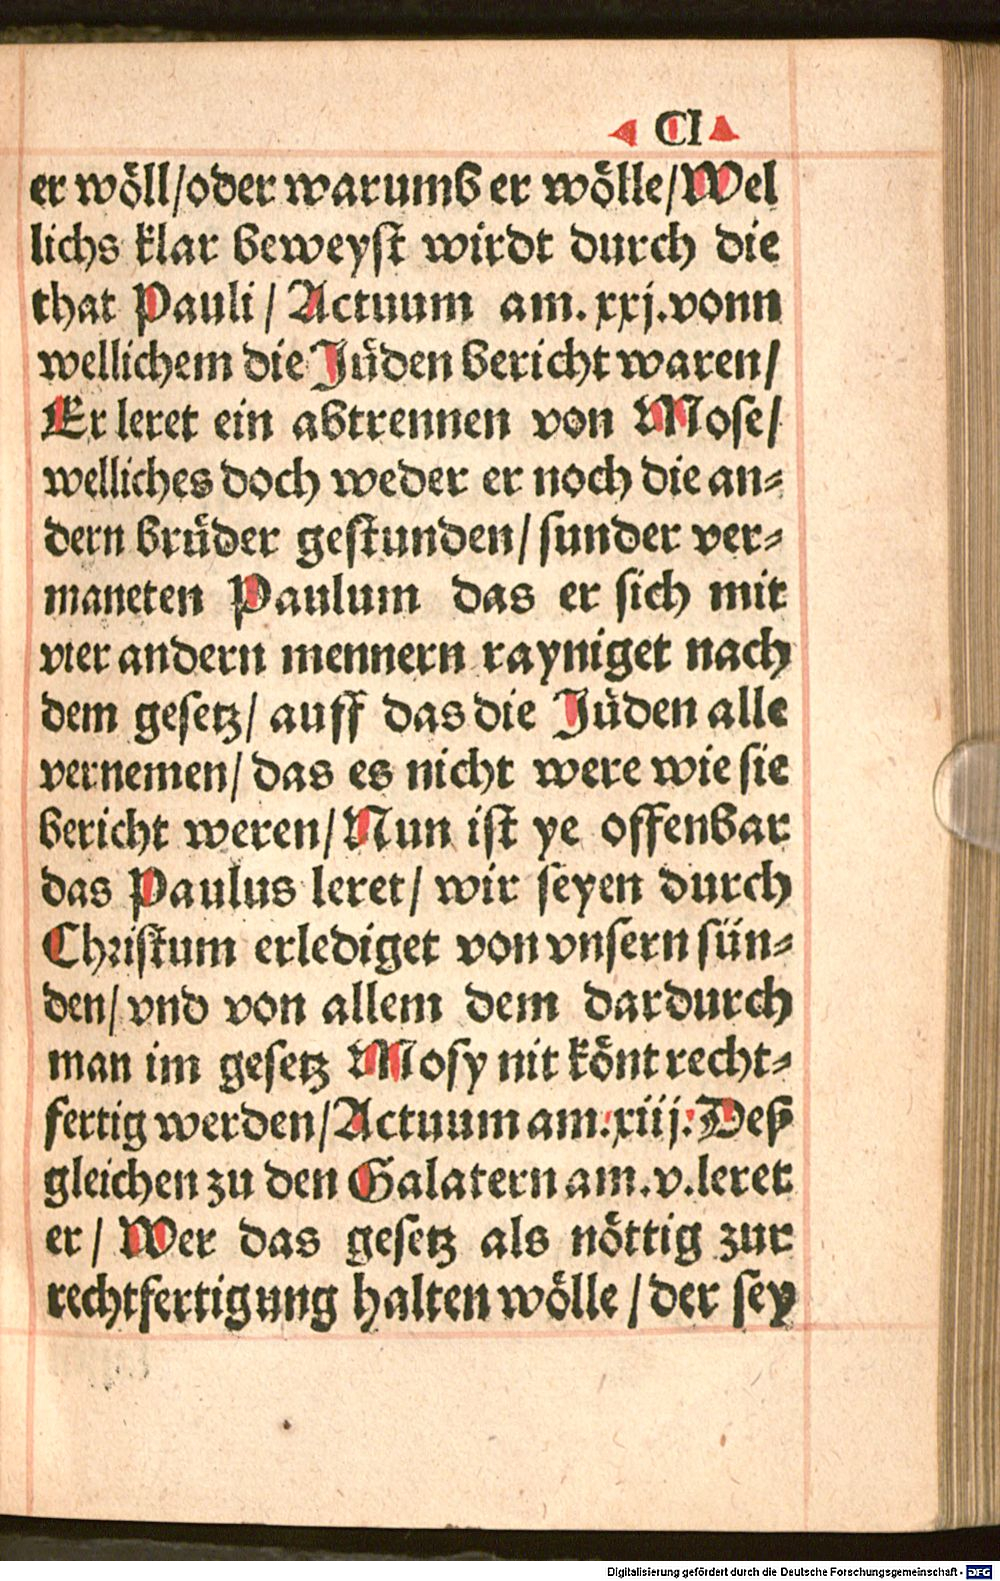 CI
er wöll/oder warumb er wölle/Wel
lichs klar beweyst wirdt durch die
that Pauli/ Actuum am. xxj. vonn
wellichem die Jüden bericht waren/
Er leret ein abtrennen von Mose/
welliches doch weder er noch die an-
dern brüder gestunden/ sunder ver-
maneten Paulum das er sich mit
vier andern mennern rayniget nach
dem gesetz/ auff das die Jüden alle
vernemen/ das es nicht were wie sie
bericht weren/ Nun ist ye offenbar
das Paulus leret/ wir seyen durch
Christum erlediget von vnsern sün-
den/ vnd von allem dem dardurch
man im gesetz Mosy nit könt recht-
fertig werden/ Actuum am. xiij. Deß
gleichen zu den Galatern am. v. leret
er/ Wer das gesetz als nöttig zur
rechtfertigung halten wölle/ der sey
Digitalisierung gefördert durch die Deutsche Forschungsgemeinschaft - DFG